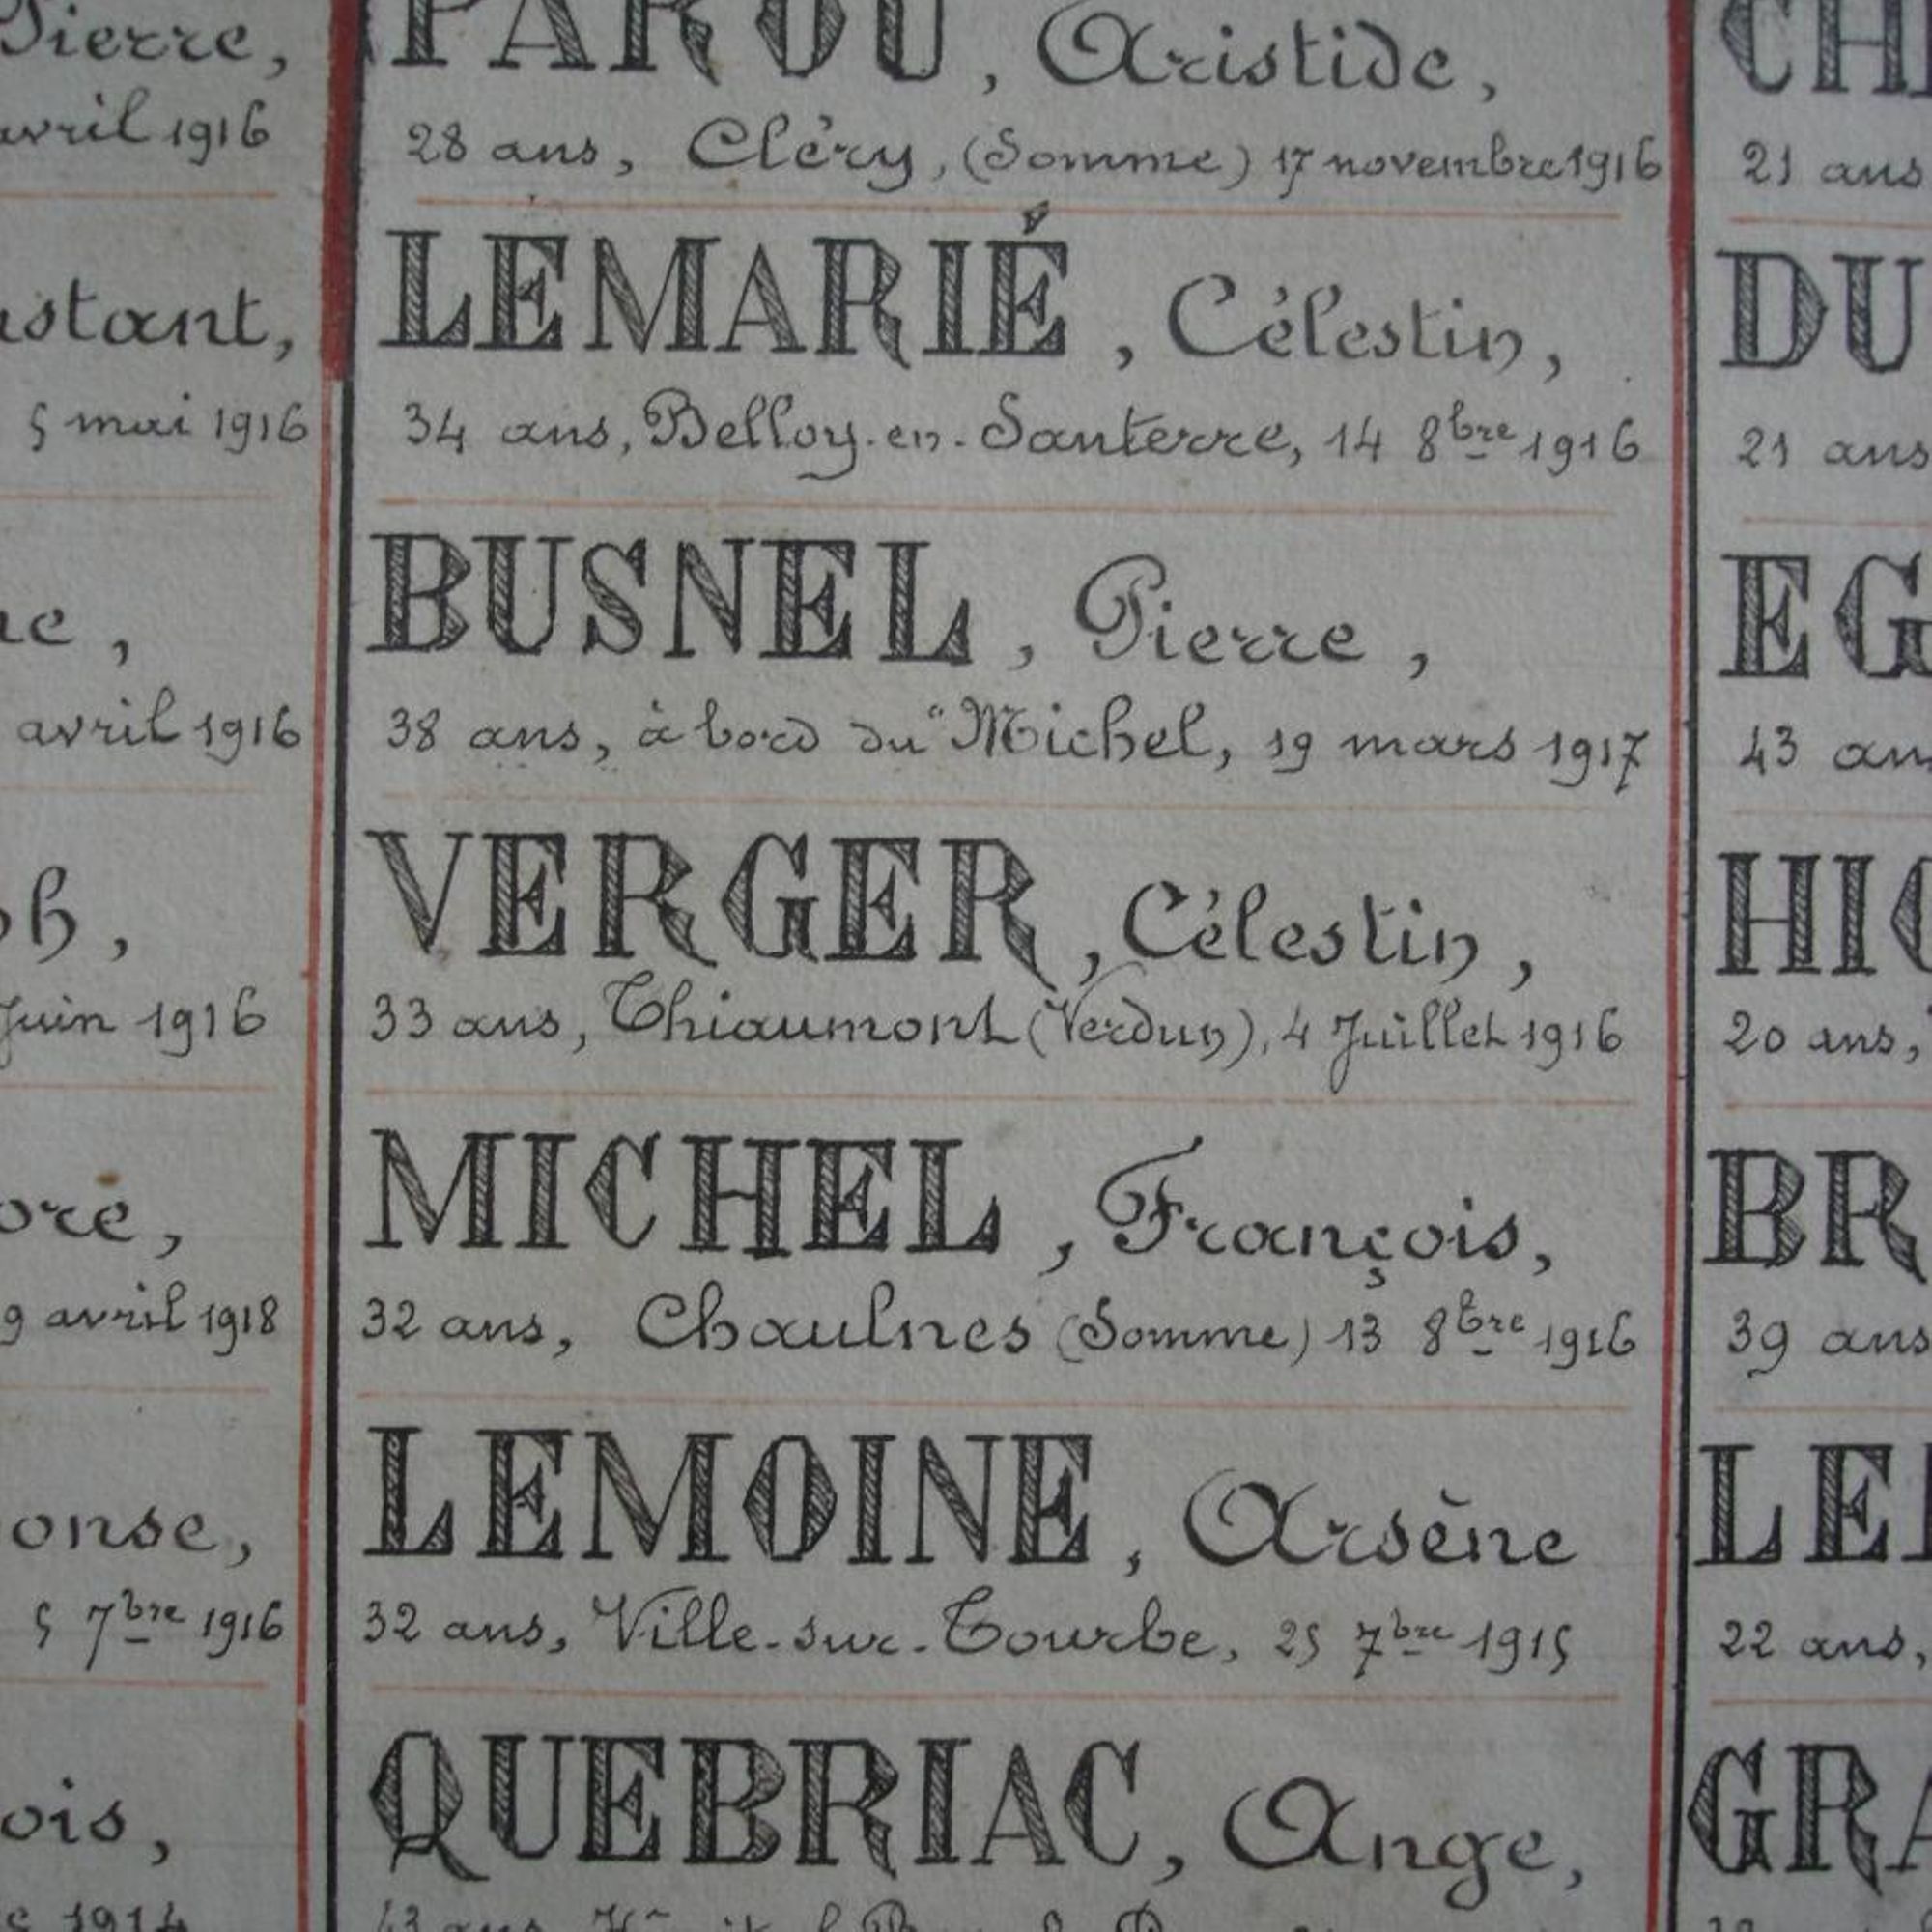 Pierre,
avril 1916
stant,
5 mai 1916
avril 1916
Juin 1916
9 avril 1918
5 7bre 1916
1914
PAROU, Aristide,
28 ans, Cléry, (Somme) 17 novembre 1916
LEMARIÉ, Célestin,
34 ans, Belloy-en-Santerre, 14 8bre 1916
BUSNEL, Pierre,
38 ans, à bord du "Michel, 19 mars 1917
VERGER, Célestin,
33 ans, Thiaumont (Verdun), 4 Juillet 1916
MICHEL, François,
32 ans, Chaulnes (Somme) 13 8bre 1916
LEMOINE, Arsène
32 ans, Ville-sur-Tourbe, 25 7bre 1915
QUEBRIAC, Ange,
43 ans,
CH
21 ans
DU
21 ans
EG
43 an
HI
20 ans,
BR
39 ans
LE
22 ans,
GRA